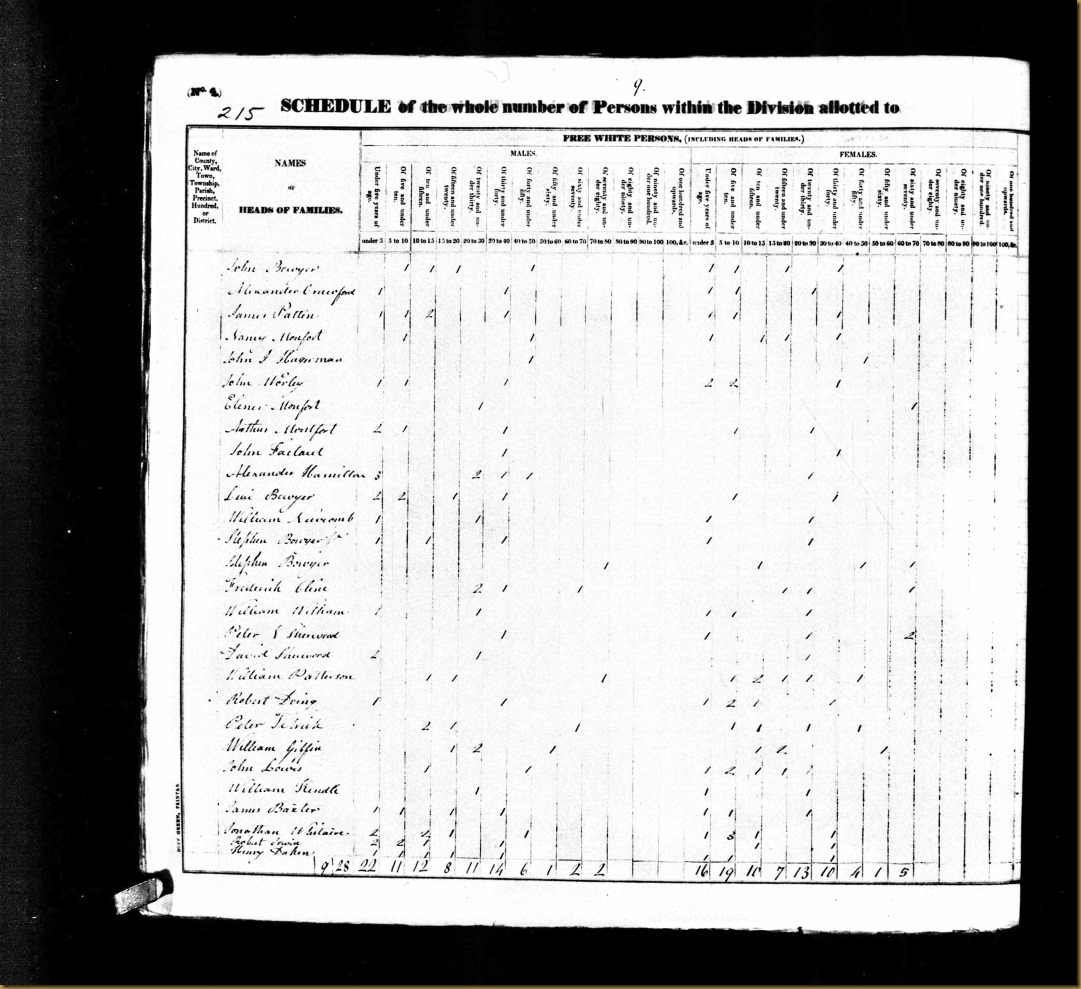 9.
(No. 4.)
215
SCHEDULE of the whole number of Persons within the Division allotted to
FREE WHITE PERSONS, (INCLUDING HEADS OF FAMILIES.)
MALES. FEMALES.
Name of County, City, Ward, Town, Township, Parish, Precinct, Hundred, or District.
NAMES
OF
HEADS OF FAMILIES.
Under five years of age. Of five and under ten. Of ten and under fifteen. Of fifteen and under twenty. Of twenty and under thirty. Of thirty and under forty. Of forty and under fifty. Of fifty and under sixty. Of sixty and under seventy. Of seventy and under eighty. Of eighty and under ninety. Of ninety and under one hundred. Of one hundred and upwards. Under five years of age. Of five and under ten. Of ten and under fifteen. Of fifteen and under twenty. Of twenty and under thirty. Of thirty and under forty. Of forty and under fifty. Of fifty and under sixty. Of sixty and under seventy. Of seventy and under eighty. Of eighty and under ninety. Of ninety and under one hundred. Of one hundred and upwards.
under 5 5 to 10 10 to 15 15 to 20 20 to 30 30 to 40 40 to 50 50 to 60 60 to 70 70 to 80 80 to 90 90 to 100 100, &c. under 5 5 to 10 10 to 15 15 to 20 20 to 30 30 to 40 40 to 50 50 to 60 60 to 70 70 to 80 80 to 90 90 to 100 100, &c.
John Bowyer 1 1 1 1 1 1 1 1
Alexander Crawford 1 1 1 1 1
James Patten 1 1 2 1 1 1 1
Nancy Monfort 1 1 1 1 1 1
John Hagerman 1 1
John Worley 1 1 1 2 2 1
Elener Monfort 1 1
Arthur Montfort 2 1 1 1 1
John 1 1
Alexander Hamilton 3 2 1 1 1
Levi Bowyer 2 2 1 1 1 1
William Newcomb 1 1 1 1
Stephen Bowyer Jr 1 1 1 1 1
Stephen Bowyer 1 1 1 1
Frederick Cline 2 1 1 1 1 1
William Witham 1 1 1 1 1
Peter Sherwood 1 1 1 2
David Sherwood 2 1 1
William Patterson 1 1 1 1 2 1 1 1
Robert Doing 1 1 1 2 1 1
Peter 2 1 1 1 1 1 1
William Giffin 1 2 1 1 2 1
John Lowis 1 1 1 2 1 1 1
William Kendle 1 1 1
James Baxter 1 1 1 1 1 1 1
Jonathan Whitaire 2 2 1 1 1 3 1 1
Robert Irwin 2 2 1 1 1 1
Henry Baker 1 1 1 1 1 1 1 1
9 28 22 11 12 8 11 14 6 1 2 2 16 19 10 7 13 10 4 1 5
DUFF GREEN, PRINTER.